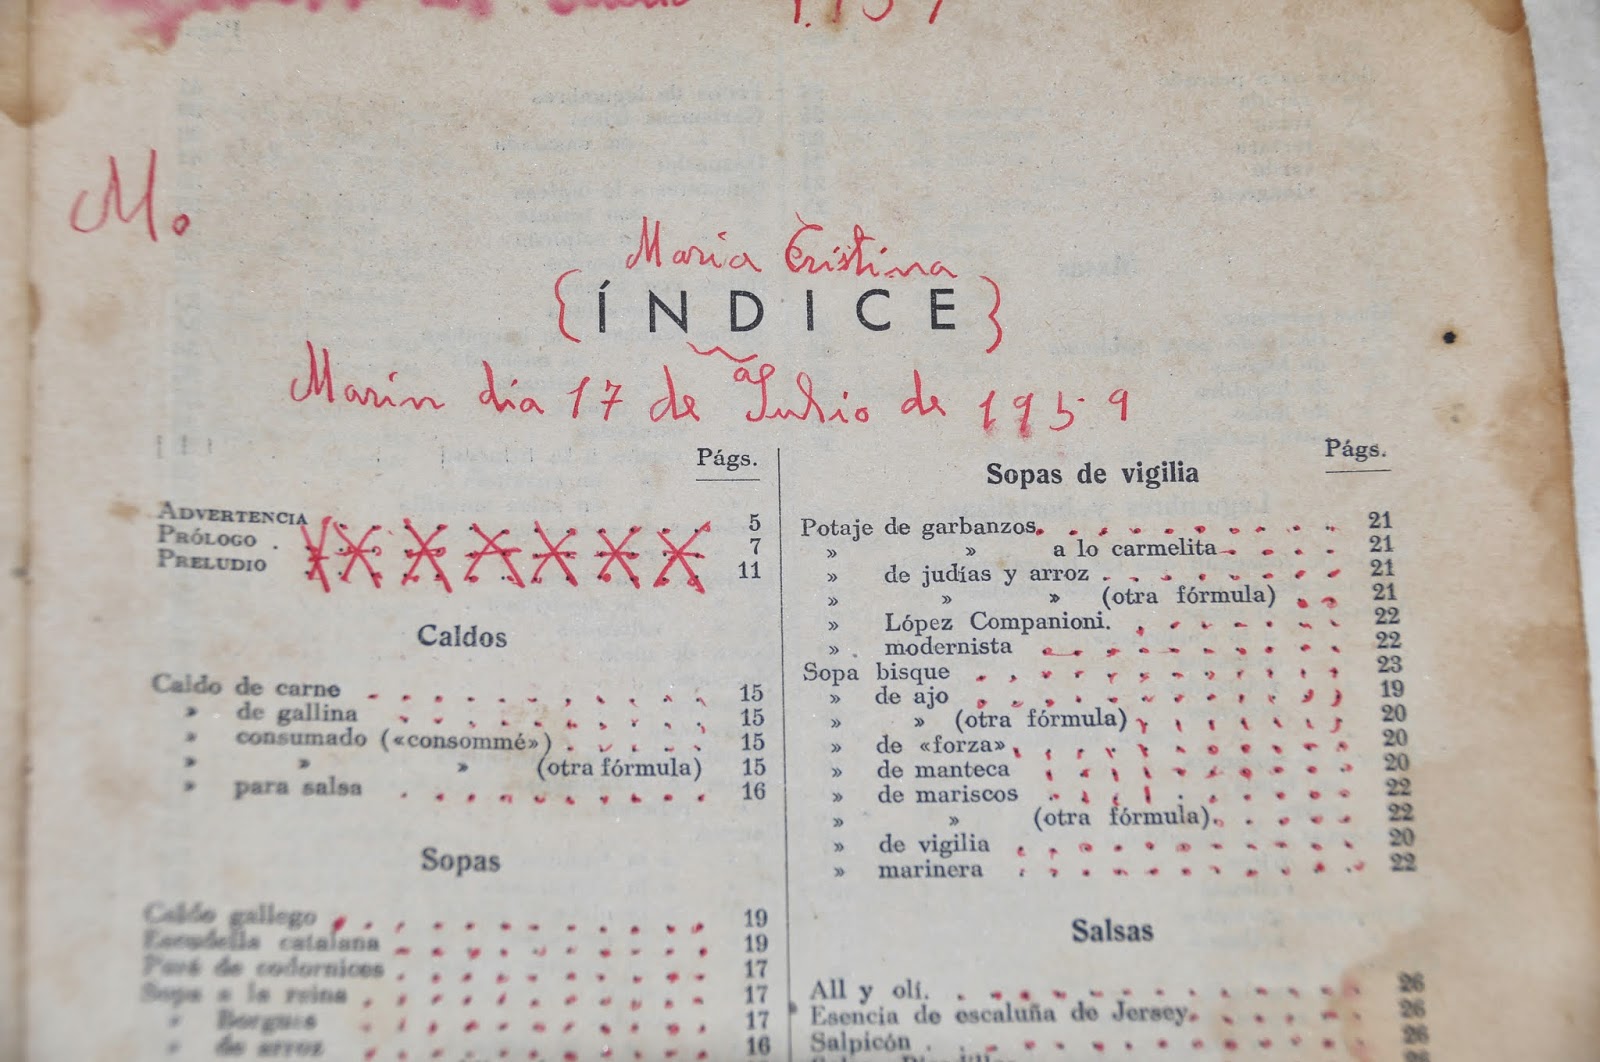 M.
Maria Cristina
{ÍNDICE}
Marin día 17 de Julio de 1959
Págs.
ADVERTENCIA 5
PRÓLOGO . 7
PRELUDIO 11
Caldos
Caldo de carne . . . . . . . . . . 15
» de gallina . . . . . . . . . 15
» consumado («consommé») . . . . . 15
» » » (otra fórmula) 15
» para salsa . . . . . . . . . . 16
Sopas
Caldo gallego . . . . . . . . . . . 19
Escudella catalana . . . . . . . . . 19
Puré de codornices . . . . . . . . . 17
Sopa a la reina . . . . . . . . . . 17
» Borgues . . . . . . . . . . 17
» de arroz . . . . . . . . . . 16
Págs.
Sopas de vigilia
Potaje de garbanzos. . . . . . . . . . 21
» » a lo carmelita . . . . . 21
» de judías y arroz . . . . . . . . 21
» » » (otra fórmula) . . 21
» López Companioni. . . . . . . . 22
» modernista . . . . . . . . . . 22
Sopa bisque . . . . . . . . . . . . 23
» de ajo . . . . . . . . . . . . 19
» » (otra fórmula) . . . . . . . 20
» de «forza» . . . . . . . . . . . 20
» de manteca . . . . . . . . . . 20
» de mariscos . . . . . . . . . . 22
» » (otra fórmula). . . . . 22
» de vigilia . . . . . . . . . . . 20
» marinera . . . . . . . . . . . 22
Salsas
All y olí. . . . . . . . . . . . . . 26
Esencia de escaluña de Jersey. . . . . . 26
Salpicón . . . . . . . . . . . . . 26